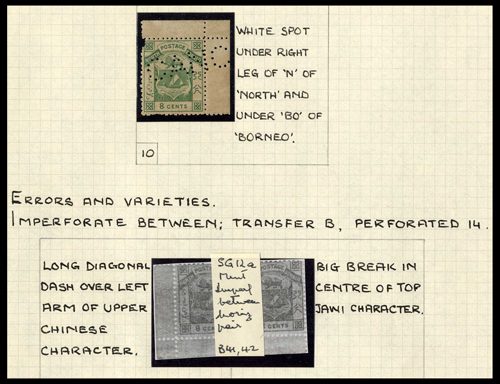 WHITE SPOT
UNDER RIGHT
LEG OF 'N' OF
'NORTH' AND
UNDER 'BO' OF
'BORNEO'.
POSTAGE
8 CENTS
10
ERRORS AND VARIETIES.
IMPERFORATE BETWEEN; TRANSFER B, PERFORATED 14.
LONG DIAGONAL
DASH OVER LEFT
ARM OF UPPER
CHINESE
CHARACTER.
SG 12a
Mint
imperf
between
horiz
pair
B41, 42
8 CEN
CENTS
BIG BREAK IN
CENTRE OF TOP
JAWI CHARACTER.